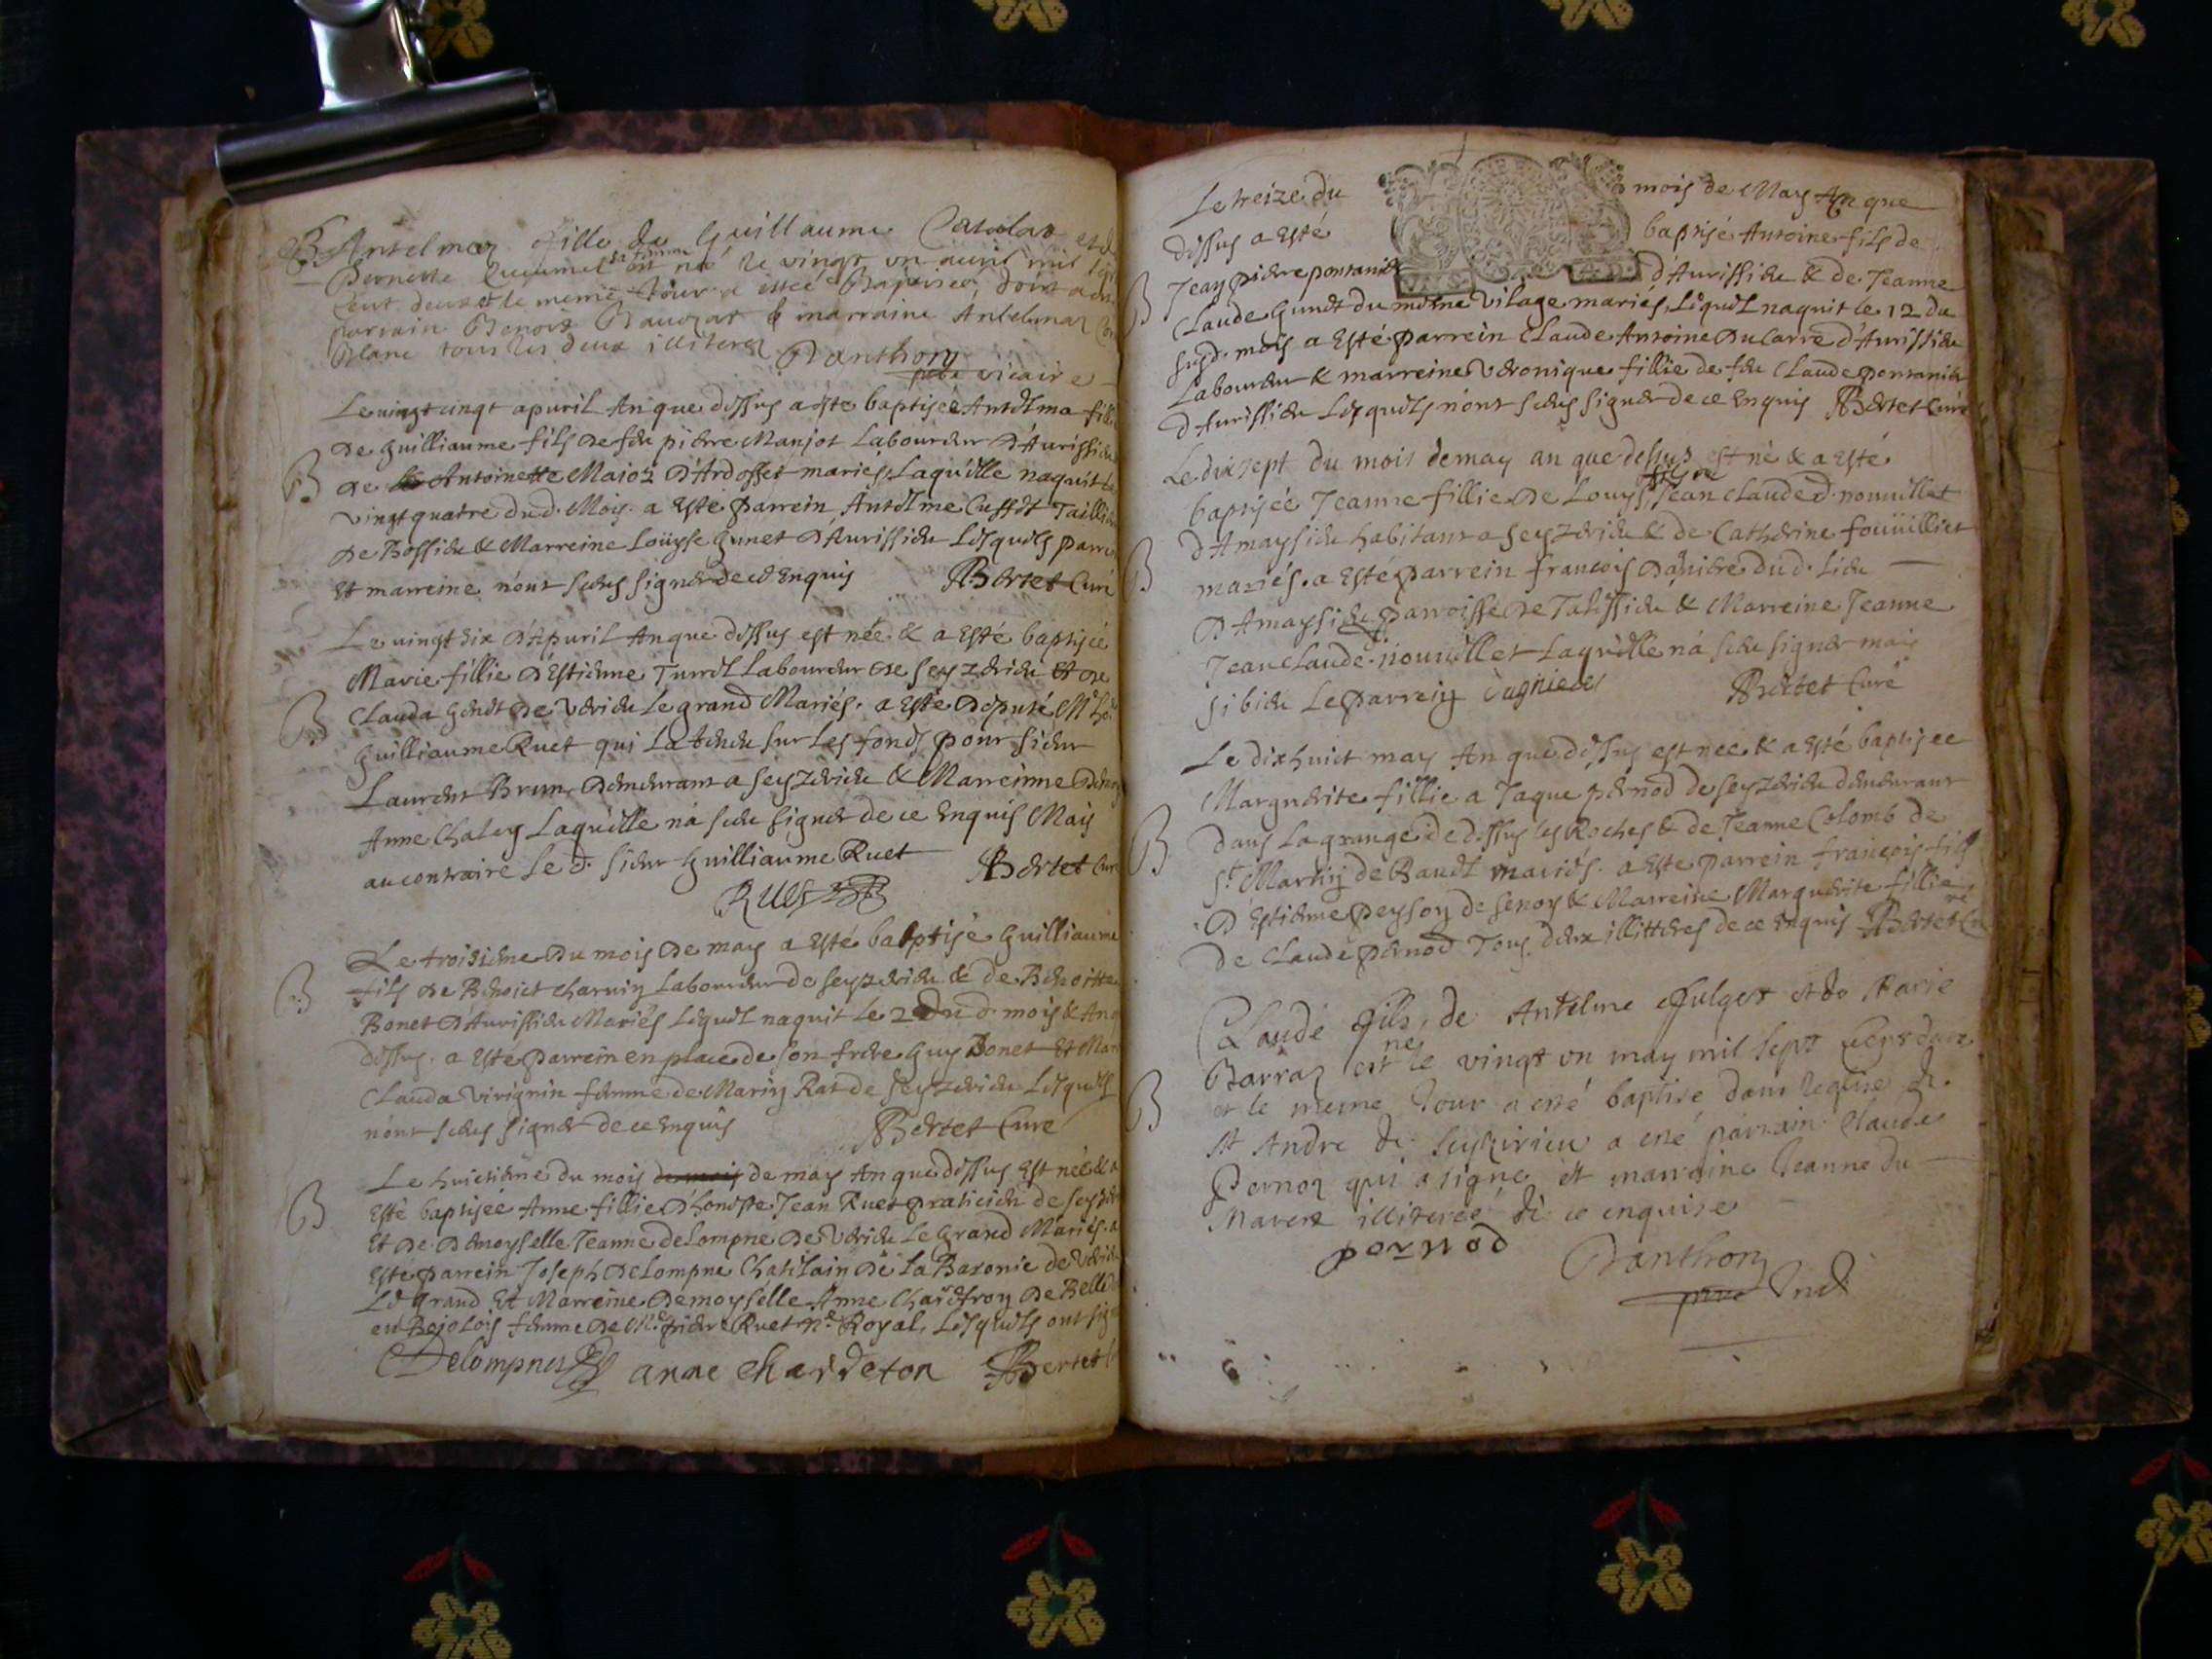 B Antelmaz fille de Guillaume Catelas et de
Pernette sa femme est né le vingt un auril mil sept
cent deux et le meme Jour a esté Baptisée, dont a esté
parrain Benoit Bauozat & marraine Antelmaz
Blanc tous les deux illiterez Danthon
pbre vicaire
Le vingt cinqt apuril An que dessus a éste baptiseé Antelma fille
B De Guilliaume fils de feu pierre Manjot Laboureur D'Aurissieu
De Antoinette Maioz D'Ardosset mariés, Laquelle naquit le
vingt quatre dud. Mois. a Esté parrein Antelme Cussét Taillieur
De Bossieu & Marreine Loüyse Gunet D'Aurissieu Lesquels parrein
Et marreine n'ont sceus signer de ce Enquis Bertet Curé
Le uingt six D'Apuril An que dessus est née & a Esté baptiseé
Marie fillie D'Estienne Turrel Laboureur De seyzerieu et de
B Clauda Genet De Verieu Le grand Mariés. a Esté Deputé Mr
Guilliaume Ruet qui La tenue sur Les fonds pour sieur
Laurent Brun Demeurant a seyzerieu & Marreinne
Anne Chaley Laquelle n'a sceu signer de ce Enquis Mais
au contraire Le d. sieur Guilliaume Ruet Bertet Curé
Ruet
Le troisieme Du mois De may a Esté baptisé Guilliaume
B fils De Benoict charuin Laboureur de seyzerieu & de Benoitte
Bonet D'Aurissieu Mariés Lequel naquit Le 2 Du d. mois & An
dessus. a Esté parrein en place de son frere Guy Bonet Et Mar
Clauda Virignin femme de Marin Rat de seyzerieu Lesquels
n'ont sceus signer de ce Enquis Bertet Curé
Le huictieme du mois de mois de may An que dessus Est neé & a
B Esté baptiseé Anne fillie D'honeste Jean Ruet praticien de seyzerieu
Et De Demoyselle Jeanne delompne De Verieu Le Grand Mariés. a
Esté parrein Joseph Delompne Chatelain De La Baronie de Verieu
Le grand Et Marreine Demoyselle Anne Chardetton De Belle
en Bojolois femme De Me pierre Ruet Nre Royal, Lesquels ont signé
Delompnes anne chardeton Bertet
Le treize du mois de May An que
dessus a Esté baptisé Antoine fils de
B Jean pierre pontanier d'Aurissieu & de Jeanne
Claude Gunet du meme Vilage mariés, Lequel naquit le 12 du
susd. mois a Esté parrein Claude Antoine Ducarre d'Aurissieu
Laboureur & marreine Veronique fillie de feu Claude pontanier
d'Aurissieu Lesquels n'ont sceus signer de ce Enquis Bertet Curé
Le dix sept du mois de may an que dessus est né & a esté
baptiseé Jeanne fillie De Louys Jean claude d. nouuillet
B d'Amaysieu habitant a seyzerieu & de Catherine fouuilliet
mariés. a Esté parrein francois du d. Lieu
D'Amaysieu parroisse De Talissieu & Marreine Jeanne
Jean Claude nouuillet Laquelle n'a sceu signer mais
si bien Le parrein Bertet Curé
Le dix huict may An que dessus est neé & a Esté baptiseé
Marguerite fillie a Jaque pernod de seyzerieu demeurant
B dans La grange de dessus les Roches & de Jeanne Colomb de
St Martin de Bauel mariés. a Esté parrein francois fils
D'Estienne peysson de senoy & Marreine Marguerite fillie
De Claude pernod Tous deux illitteres de ce Enquis Bertet Curé
Claude fils de Antelme Fulget et de Marie
Barraz est né le vingt un may mil sept cent deux
B et le meme Jour a esté baptisé dans leglise de
St André de Seyzirieu a esté parrain Claude
Pernoz qui a signé et marraine Jeanne du
Maret illiterée de ce enquise
pernod Danthon
pbre